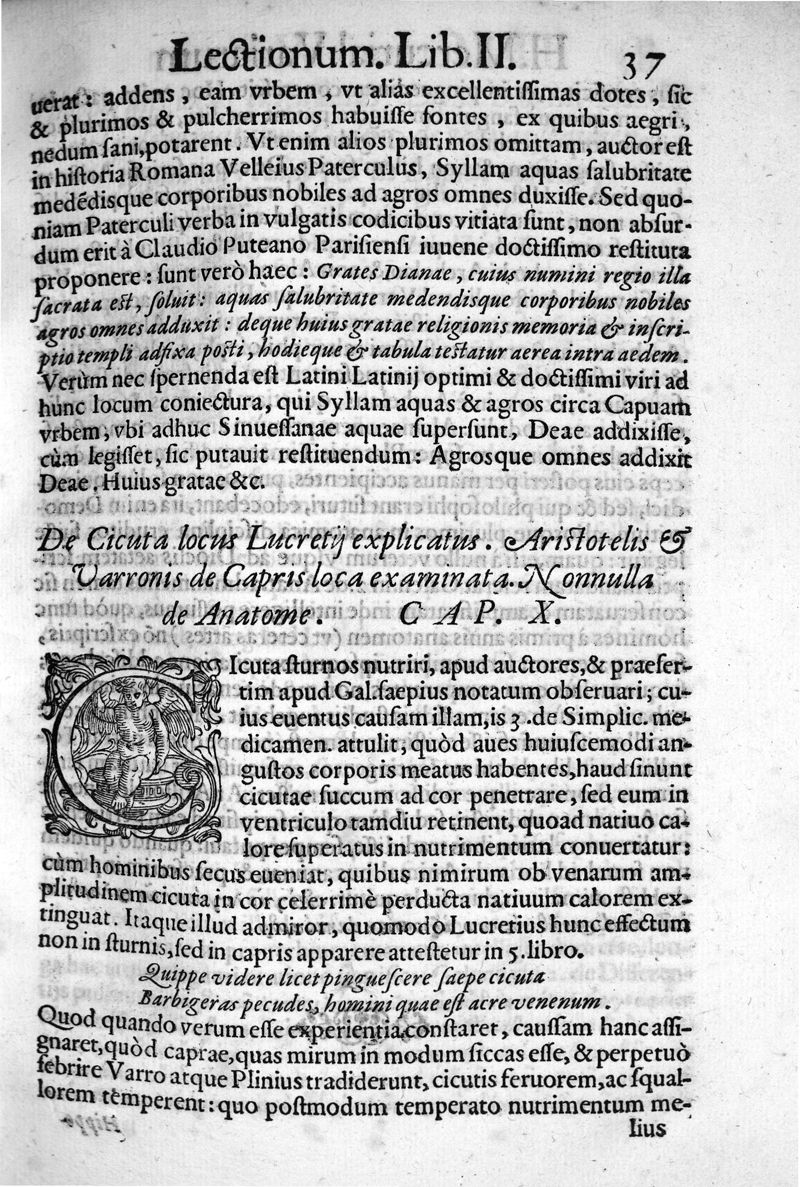 Lectionum. Lib. II. 37
uerat: addens, eam vrbem, vt alias excellentissimas dotes, sic
& plurimos & pulcherrimos habuisse fontes, ex quibus aegri,
nedum sani, potarent. Vt enim alios plurimos omittam, auctor est
in historia Romana Velleius Paterculus, Syllam aquas salubritate
medēdisque corporibus nobiles ad agros omnes duxisse. Sed quo-
niam Paterculi verba in vulgatis codicibus vitiata sunt, non absur-
dum erit à Claudio Puteano Parisiensi iuuene doctissimo restituta
proponere: sunt verò haec: Grates Dianae, cuius numini regio illa
sacrata est, soluit: aquas salubritate medendisque corporibus nobiles
agros omnes adduxit: deque huius gratae religionis memoria & inscri-
ptio templi adfixa posti, hodieque & tabula testatur aerea intra aedem.
Verùm nec spernenda est Latini Latinij optimi & doctissimi viri ad
hunc locum coniectura, qui Syllam aquas & agros circa Capuam
vrbem, vbi adhuc Sinuessanae aquae supersunt, Deae addixisse,
cùm legisset, sic putauit restituendum: Agrosque omnes addixit
Deae. Huius gratae &c.
De Cicuta locus Lucretij explicatus. Aristotelis &
Varronis de Capris loca examinata. Nonnulla
de Anatome. CAP. X.
CIcuta sturnos nutriri, apud auctores, & praeser-
tim apud Gal. saepius notatum obseruari; cu-
ius euentus causam illam, is 3. de Simplic. me-
dicamen. attulit, quòd aues huiuscemodi an-
gustos corporis meatus habentes, haud sinunt
cicutae succum ad cor penetrare, sed eum in
ventriculo tamdiu retinent, quoad natiuo ca-
lore superatus in nutrimentum conuertatur:
cùm hominibus secus eueniat, quibus nimirum ob venarum am-
plitudinem cicuta in cor celerrimè perducta natiuum calorem ex-
tinguat. Itaque illud admiror, quomodo Lucretius hunc effectum
non in sturnis, sed in capris apparere attestetur in 5. libro.
Quippe videre licet pinguescere saepe cicuta
Barbigeras pecudes, homini quae est acre venenum.
Quod quando verum esse experientia constaret, caussam hanc assi-
gnaret, quòd caprae, quas mirum in modum siccas esse, & perpetuò
febrire Varro atque Plinius tradiderunt, cicutis feruorem, ac squal-
lorem temperent: quo postmodum temperato nutrimentum me-
lius